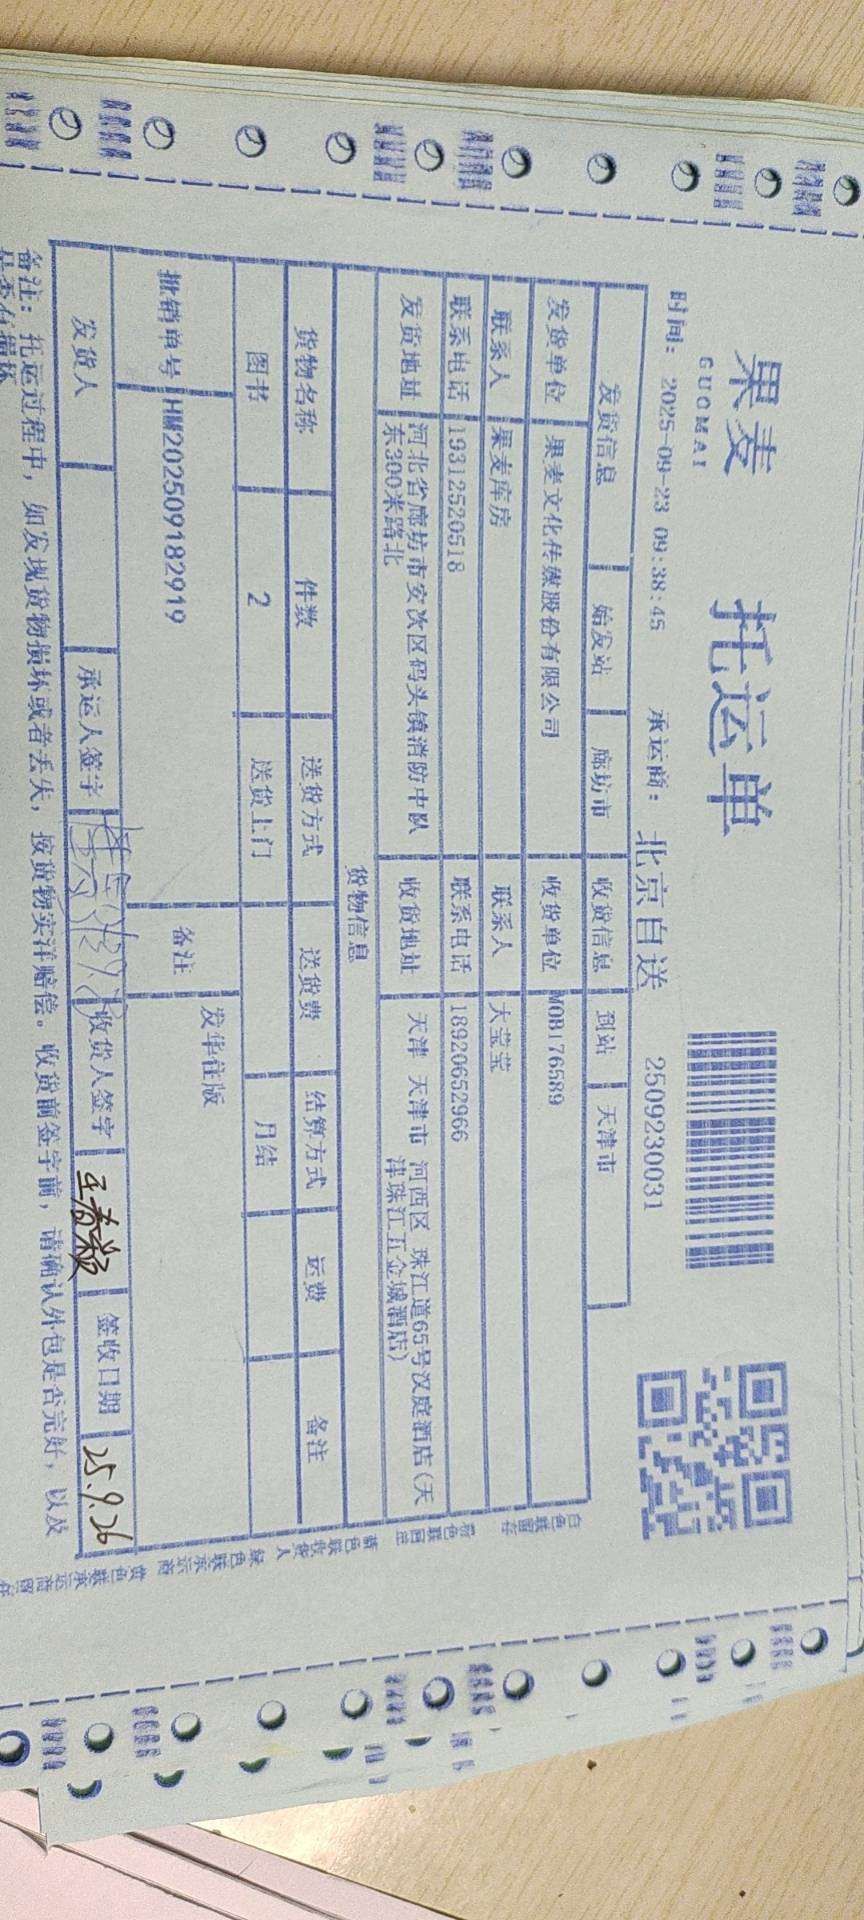 果麦
GUOMAI
托运单
时间: 2025-09-23 09:38:45 承运商: 北京自送 2509230031
发货信息 始发站 廊坊市 收货信息 到站 天津市
发货单位 果麦文化传媒股份有限公司 收货单位 MOB176589
联系人 果麦库房 联系人 大莹莹
联系电话 19312520518 联系电话 18920652966
发货地址 河北省廊坊市安次区码头镇消防中队 收货地址 天津 天津市 河西区 珠江道65号汉庭酒店(天
东300米路北 津珠江五金城酒店)
货物信息
货物名称 件数 送货方式 送货费 结算方式 运费 备注
图书 2 送货上门 月结
批销单号 HM202509182919 备注 发华住版
发货人 承运人签字 收货人签字 王春颖 签收日期 25.9.26
备注: 托运过程中, 如发现货物损坏或者丢失, 按货物实洋赔偿。收货前签字前, 请确认外包是否完好, 以及
是否有损坏
白色联留存
蓝色联收货人
绿色联承运商
黄色联承运商留存